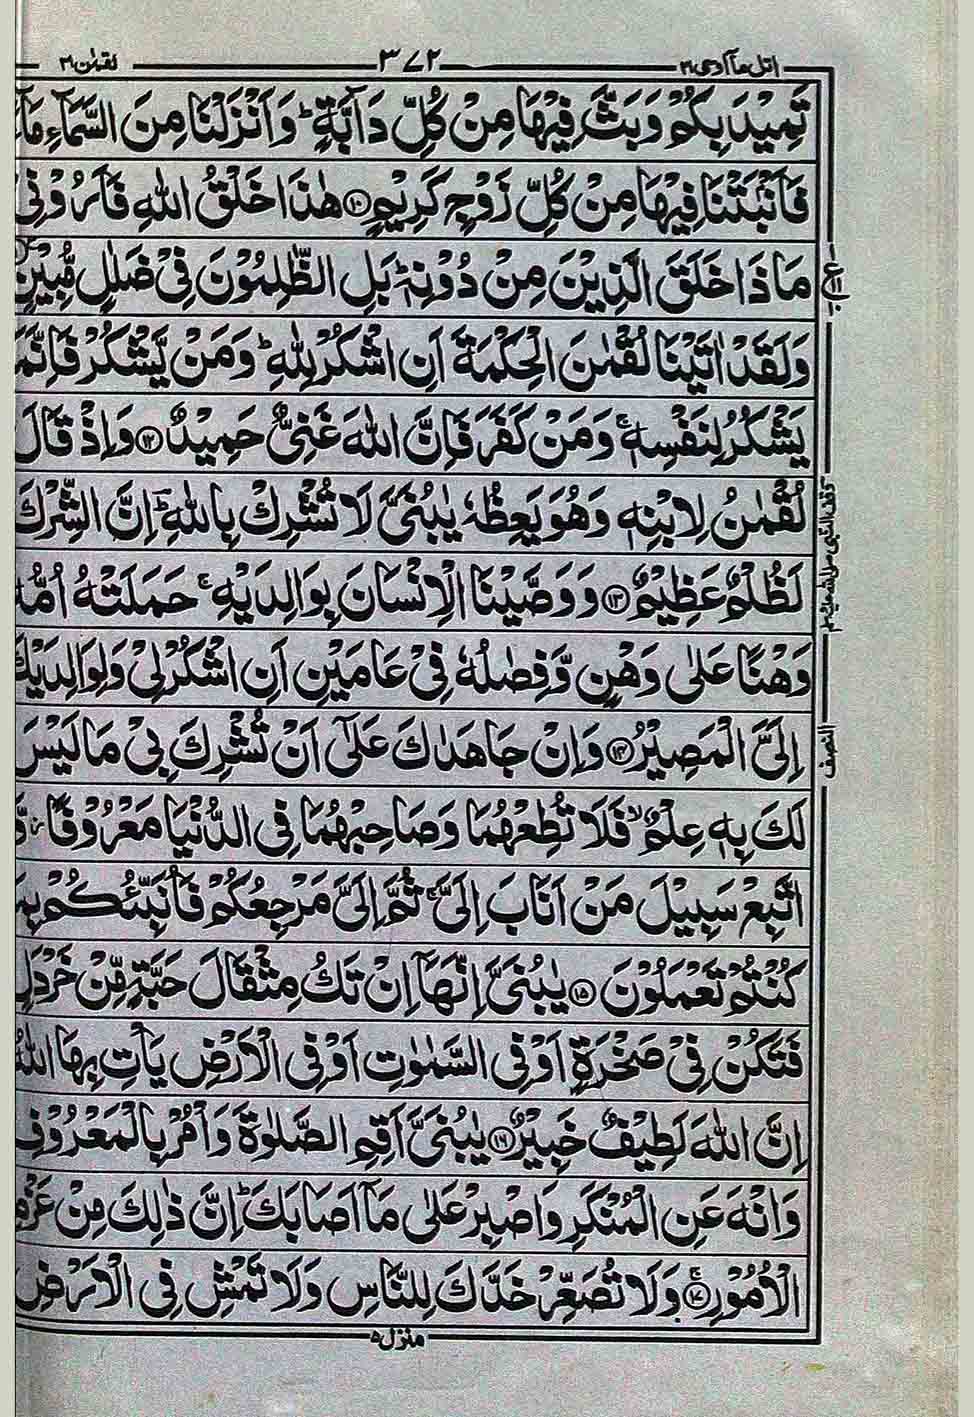 اتل مآ اوحی ۲۱ ۳۷۲ لقمٰن ۳۱
تَمِیْدَ بِكُمْ وَ بَثَّ فِیْهَا مِنْ كُلِّ دَآبَّةٍ ؕ وَ اَنْزَلْنَا مِنَ السَّمَآءِ مَآ
فَاَنْۢبَتْنَا فِیْهَا مِنْ كُلِّ زَوْجٍ كَرِیْمٍ ۝۱۰ هٰذَا خَلْقُ اللّٰهِ فَاَرُوْنِیْ
مَا ذَا خَلَقَ الَّذِیْنَ مِنْ دُوْنِهٖ ؕ بَلِ الظّٰلِمُوْنَ فِیْ ضَلٰلٍ مُّبِیْنٍ
وَ لَقَدْ اٰتَیْنَا لُقْمٰنَ الْحِكْمَةَ اَنِ اشْكُرْ لِلّٰهِ ؕ وَ مَنْ یَّشْكُرْ فَاِنَّمَ
یَشْكُرُ لِنَفْسِهٖ ۚ وَ مَنْ كَفَرَ فَاِنَّ اللّٰهَ غَنِیٌّ حَمِیْدٌ ۝۱۲ وَ اِذْ قَالَ
لُقْمٰنُ لِابْنِهٖ وَ هُوَ یَعِظُهٗ یٰبُنَیَّ لَا تُشْرِكْ بِاللّٰهِ ؔؕ اِنَّ الشِّرْكَ
لَظُلْمٌ عَظِیْمٌ ۝۱۳ وَ وَصَّیْنَا الْاِنْسَانَ بِوَالِدَیْهِ ۚ حَمَلَتْهُ اُمُّهٗ
وَهْنًا عَلٰی وَهْنٍ وَّ فِصٰلُهٗ فِیْ عَامَیْنِ اَنِ اشْكُرْ لِیْ وَ لِوَالِدَیْكَ
اِلَیَّ الْمَصِیْرُ ۝۱۴ وَ اِنْ جَاهَدٰكَ عَلٰۤی اَنْ تُشْرِكَ بِیْ مَا لَیْسَ
لَكَ بِهٖ عِلْمٌ ۙ فَلَا تُطِعْهُمَا وَ صَاحِبْهُمَا فِی الدُّنْیَا مَعْرُوْفًا ؗ وَّ
اتَّبِعْ سَبِیْلَ مَنْ اَنَابَ اِلَیَّ ۚ ثُمَّ اِلَیَّ مَرْجِعُكُمْ فَاُنَبِّئُكُمْ بِمَ
كُنْتُمْ تَعْمَلُوْنَ ۝۱۵ یٰبُنَیَّ اِنَّهَآ اِنْ تَكُ مِثْقَالَ حَبَّةٍ مِّنْ خَرْدَلٍ
فَتَكُنْ فِیْ صَخْرَةٍ اَوْ فِی السَّمٰوٰتِ اَوْ فِی الْاَرْضِ یَاْتِ بِهَا اللّٰهُ
اِنَّ اللّٰهَ لَطِیْفٌ خَبِیْرٌ ۝۱۶ یٰبُنَیَّ اَقِمِ الصَّلٰوةَ وَ اْمُرْ بِالْمَعْرُوْفِ
وَ انْهَ عَنِ الْمُنْكَرِ وَ اصْبِرْ عَلٰی مَآ اَصَابَكَ ؕ اِنَّ ذٰلِكَ مِنْ عَزْمِ
الْاُمُوْرِ ۝۱۷ۚ وَ لَا تُصَعِّرْ خَدَّكَ لِلنَّاسِ وَ لَا تَمْشِ فِی الْاَرْضِ
منزل ۵
ع
۱۱
النصف